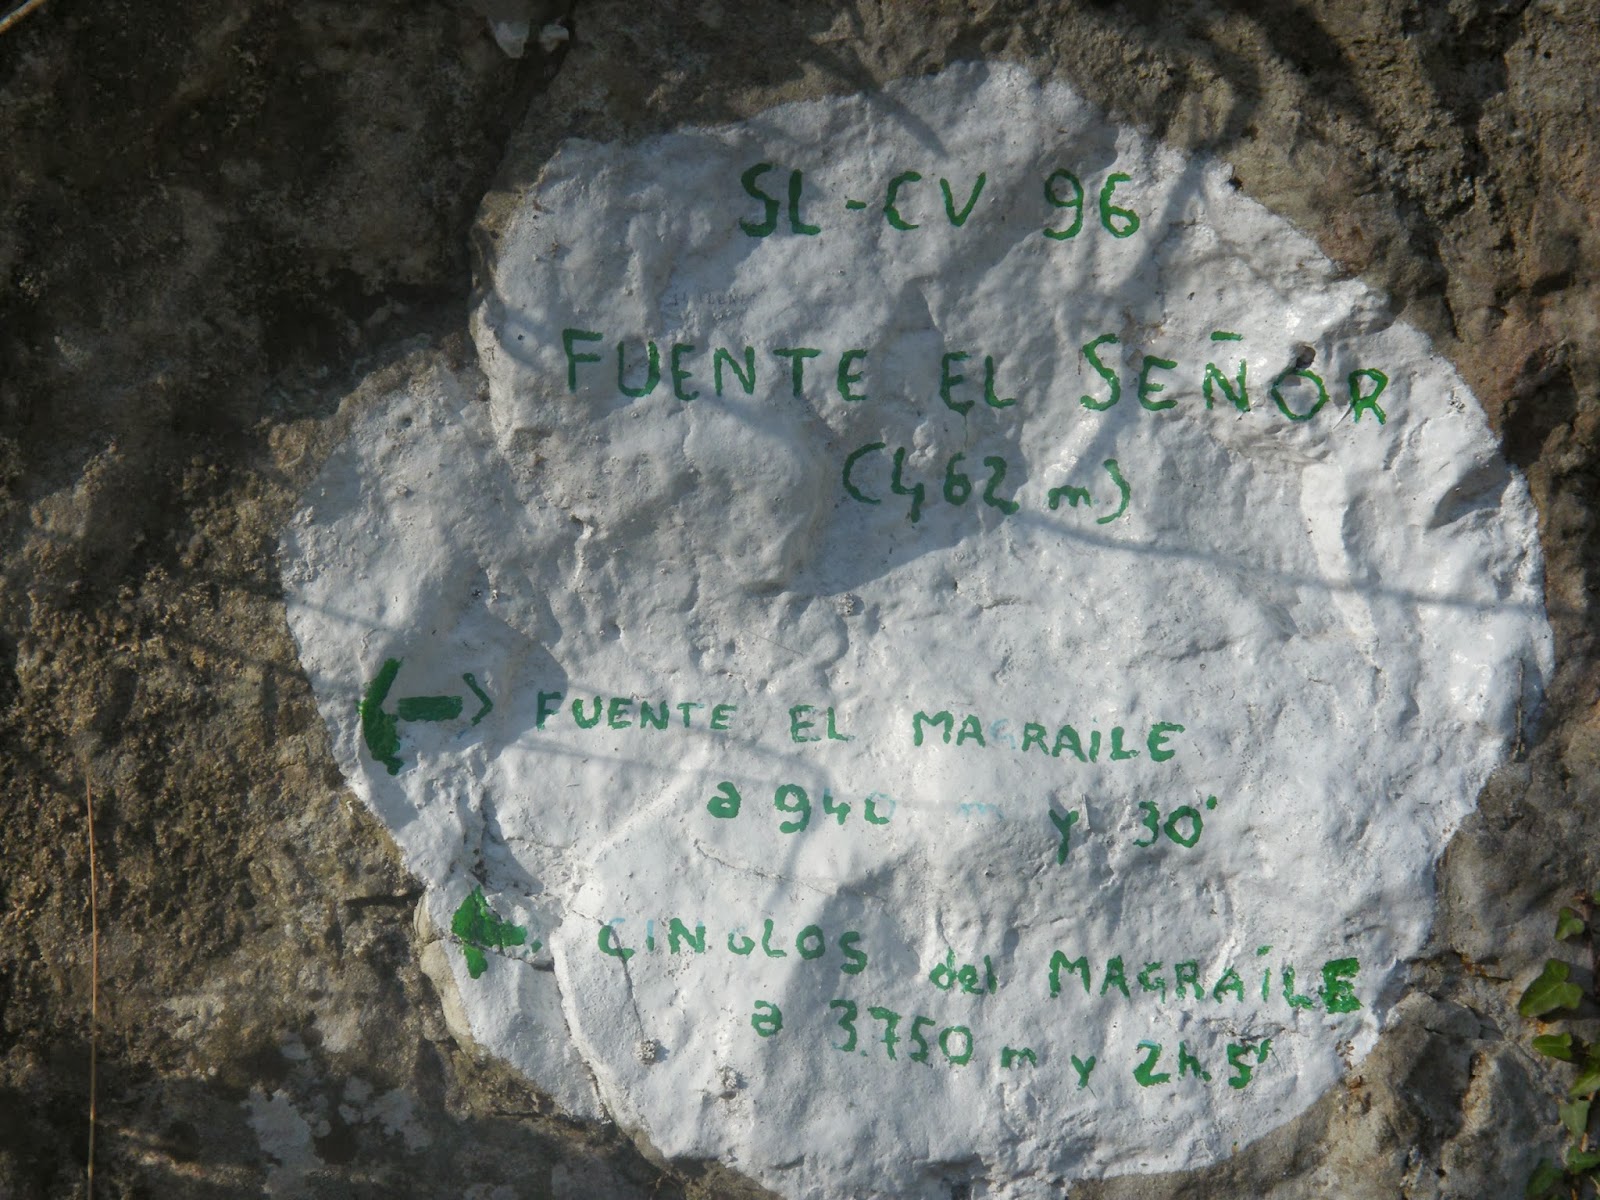 SL-CV 96
FUENTE EL SEÑOR
(462 m)
FUENTE EL MAGRAILE
a 940 m y 30'
CINGLOS del MAGRAILE
a 3.750 m y 2h. 5'